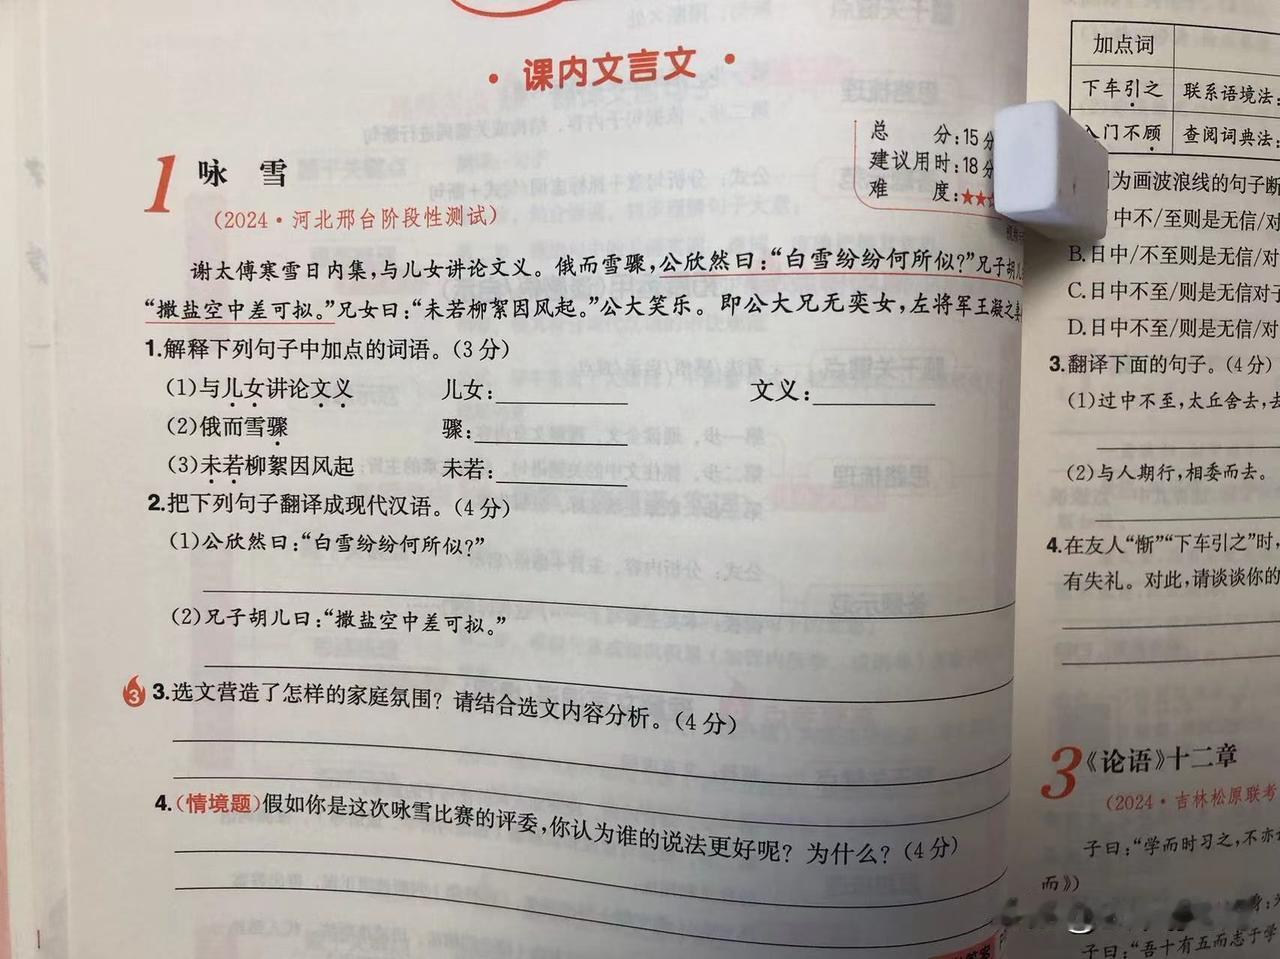 课内文言文
总 分:15分
建议用时:18分
难 度:★★
1 咏 雪
(2024·河北邢台阶段性测试)
谢太傅寒雪日内集,与儿女讲论文义。俄而雪骤,公欣然曰:“白雪纷纷何所似?”兄子胡儿
“撒盐空中差可拟。”兄女曰:“未若柳絮因风起。”公大笑乐。即公大兄无奕女,左将军王凝之妻
1.解释下列句子中加点的词语。(3分)
(1)与儿女讲论文义 儿女: 文义:
(2)俄而雪骤 骤:
(3)未若柳絮因风起 未若:
2.把下列句子翻译成现代汉语。(4分)
(1)公欣然曰:“白雪纷纷何所似?”
(2)兄子胡儿曰:“撒盐空中差可拟。”
3 3.选文营造了怎样的家庭氛围?请结合选文内容分析。(4分)
4.(情境题)假如你是这次咏雪比赛的评委,你认为谁的说法更好呢?为什么?(4分)
加点词
下车引之 联系语境法:
入门不顾 查阅词典法:
为画波浪线的句子断
中不/至则是无信/对
B.日中/不至则是无信/对
C.日中不至/则是无信对子
D.日中不至/则是无信/对
3.翻译下面的句子。(4分)
(1)过中不至,太丘舍去,去
(2)与人期行,相委而去。
4.在友人“惭”“下车引之”时,
有失礼。对此,请谈谈你的
3 《论语》十二章
(2024·吉林松原联考
子曰:“学而时习之,不亦
而》)
子曰:“吾十有五而志于学